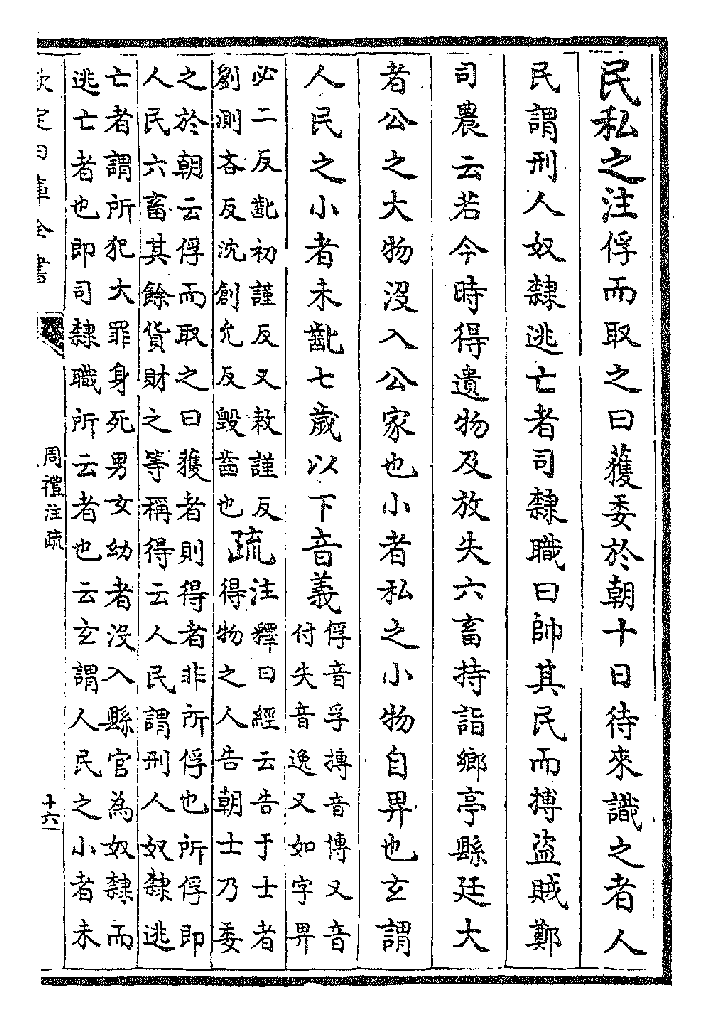 民私之注俘而取之曰獲委於朝十日待來識之者人
民謂刑人奴隸逃亡者司隸職曰帥其民而搏盜賊鄭
司農云若今時得遺物及放失六畜持詣鄉亭縣廷大
者公之大物沒入公家也小者私之小物自畀也玄謂
人民之小者未齔七歲以下音義
俘音孚搏音博又音
付失音逸又如字畀
必二反齔初謹反又敕謹反
劉測吝反沈創允反毀齒也
疏
注釋曰經云告于士者
得物之人告朝士乃委
之於朝云俘而取之曰獲者則得者非所俘也所俘即
人民六畜其餘貨財之等稱得云人民謂刑人奴隸逃
亡者謂所犯大罪身死男女幼者沒入縣官為奴隸而
逃亡者也即司隸職所云者也云玄謂人民之小者未
欽定四庫全書
周禮注疏
十六